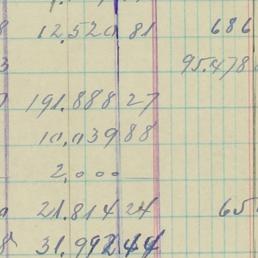 12,520 81 686
95.478
191.888 27
10,039 88
2,000
21.814 24 65
31.992 44